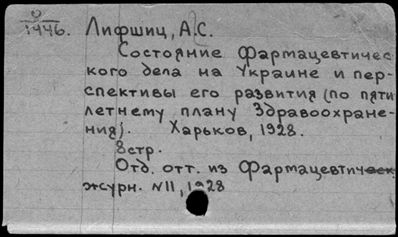 9/1446. Лифшиц, А.С.
Состояние фармацевтичес
кого дела на Украине и пер-
спективы его развития (по пяти
летнему плану Здравоохране-
ния). Харьков, 1928.
8стр.
Отд. отт. из Фармацевтическ.
журн. №11, 1928